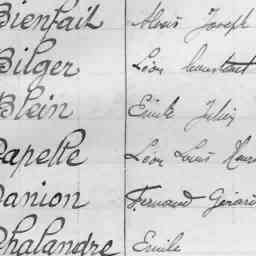 Bienfait Alexis Joseph
Bilger Léon Constant
Blein Emile Julien
Capelle Léon Louis
Danion Fernand Gérard
Chalandre Emile